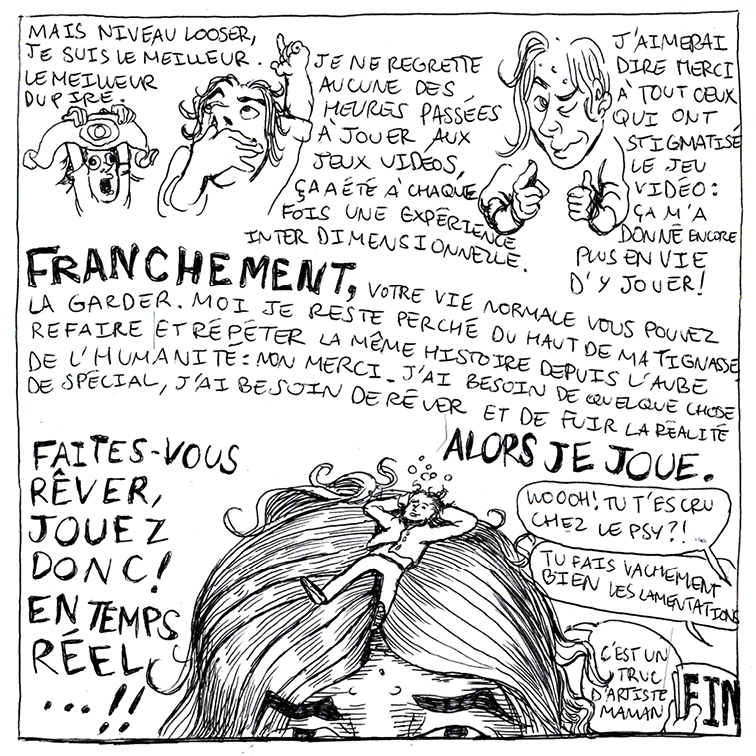 MAIS NIVEAU LOOSER,
JE SUIS LE MEILLEUR.
LE MEILLEUR
DU PIRE.
JE NE REGRETTE
AUCUNE DES
HEURES PASSÉES
À JOUER AUX
JEUX VIDÉOS,
ÇA A ÉTÉ À CHAQUE
FOIS UNE EXPÉRIENCE
INTER DIMENSIONNELLE.
J'AIMERAI
DIRE MERCI
À TOUT CEUX
QUI ONT
STIGMATISÉ
LE JEU
VIDÉO:
ÇA M'A
DONNÉ ENCORE
PLUS EN VIE
D'Y JOUER!
FRANCHEMENT, VOTRE VIE NORMALE VOUS POUVEZ
LA GARDER. MOI JE RESTE PERCHÉ DU HAUT DE MA TIGNASSE
REFAIRE ET RÉPÉTER LA MÊME HISTOIRE DEPUIS L'AUBE
DE L'HUMANITÉ: NON MERCI. J'AI BESOIN DE QUELQUE CHOSE
DE SPÉCIAL, J'AI BESOIN DE RÊVER ET DE FUIR LA RÉALITÉ
ALORS JE JOUE.
FAITES-VOUS
RÊVER,
JOUEZ
DONC!
EN TEMPS
RÉEL
...!!
WOOOH! TU T'ES CRU
CHEZ LE PSY?!
TU FAIS VACHEMENT
BIEN LES LAMENTATIONS
C'EST UN
TRUC
D'ARTISTE
MAMAN
FIN